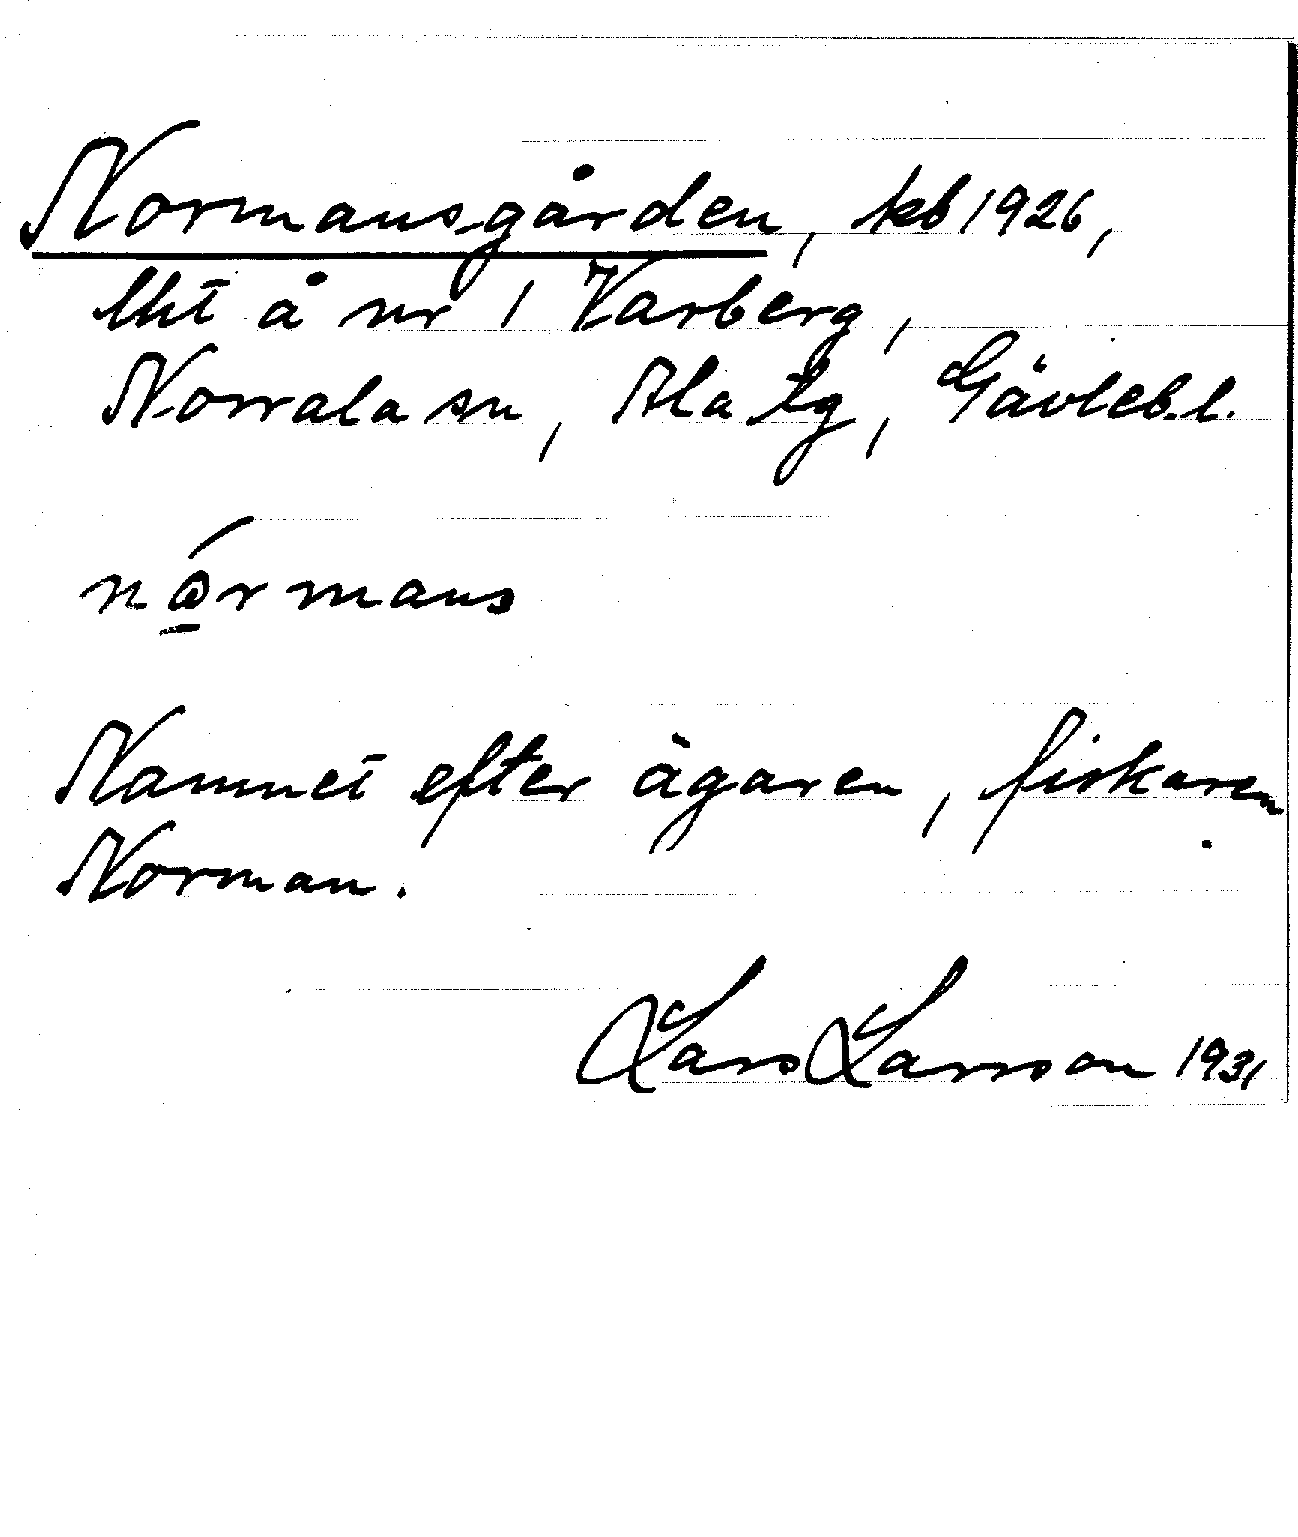 Normansgården, kb 1926,
lht å nr 1 Varberg,
Norrala sn, Ala tg, Gävleb.l.
normans
Namnet efter ägaren, fiskaren
Norman.
Lars Larsson 1931